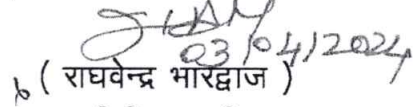 03/04/2024
( राघवेन्द्र भारद्वाज )